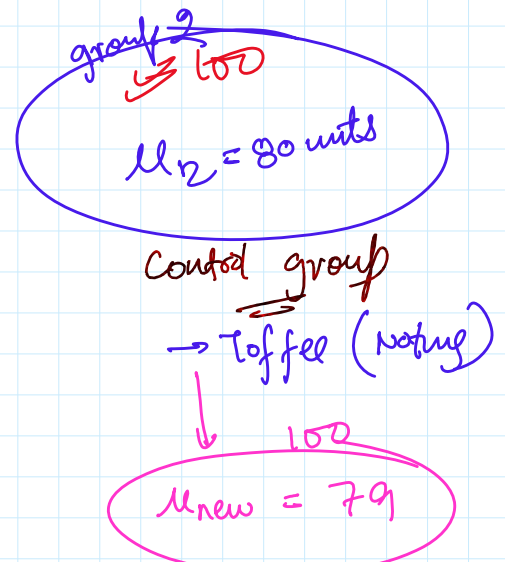 group 2
→ 100
μ2 = 80 units
Control group
→ Toffee (Nothing)
100
μnew = 79